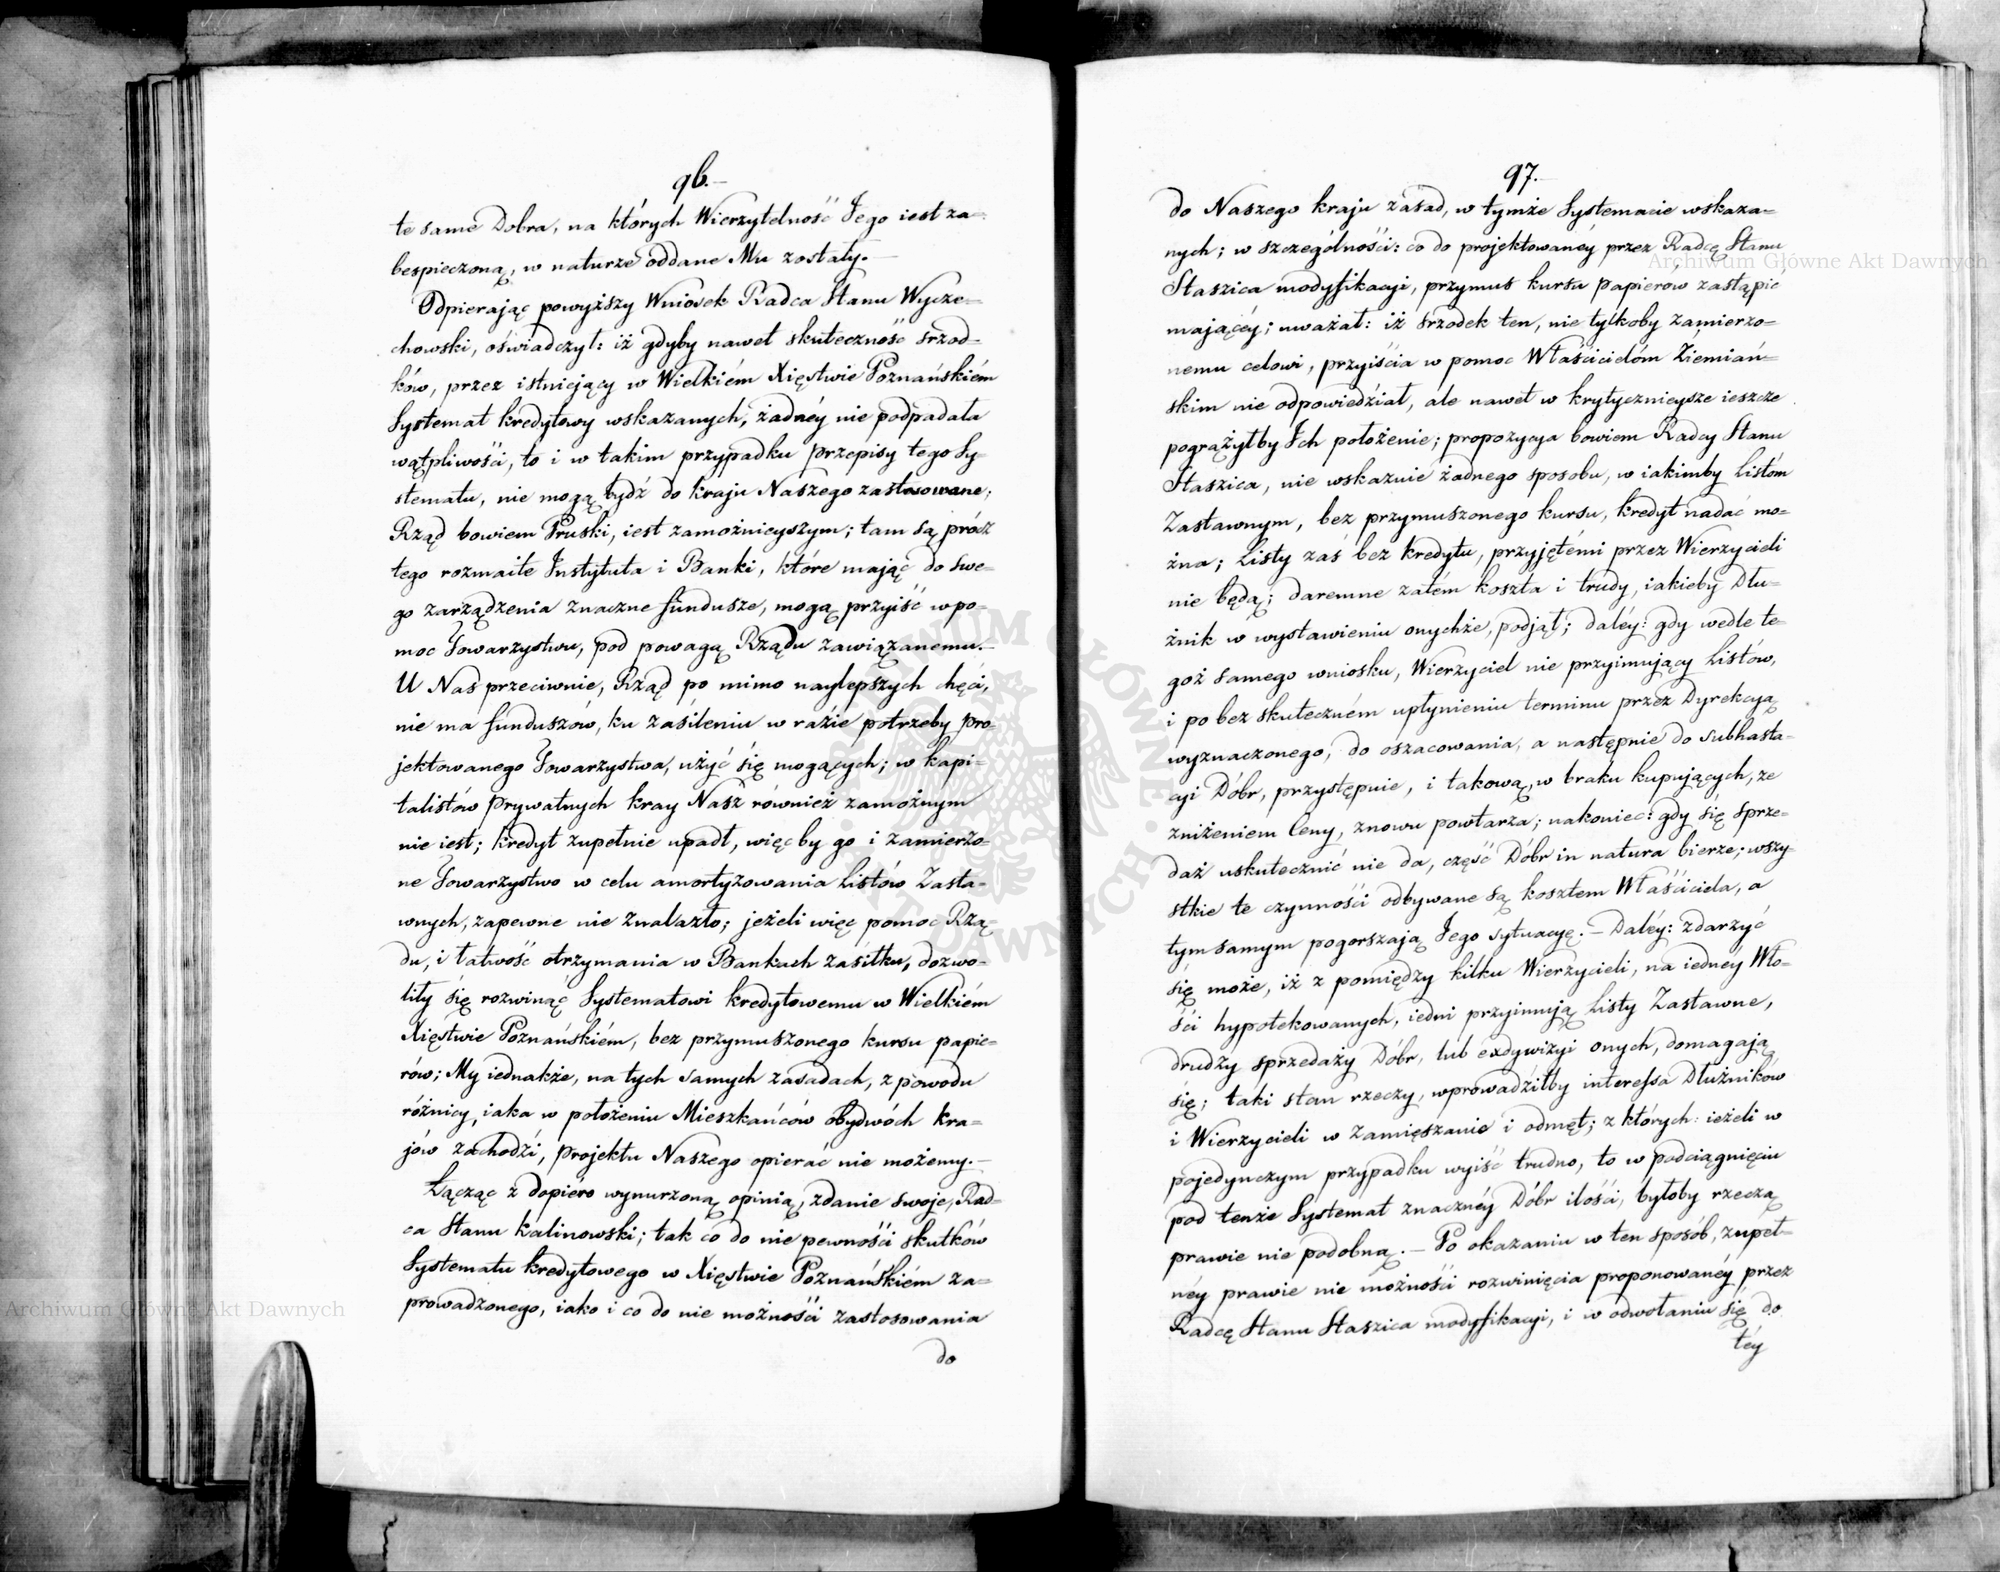 96.
te same Dobra, na których Wierzytelność Jego iest za=
bespieczoną, w naturze oddane Mu zostały.—
Odpierając powyższy Wniosek Radca Stanu Wycze=
chowski, oświadczył: iż gdyby nawet skuteczność srzod=
ków, przez istniejący w Wielkiém Xięstwie Poznańskiém
Systemat kredytowy wskazanych, żadnéy nie podpadała
wątpliwości, to i w takim przypadku przepisy tego Sy=
stematu, nie mogą bydź do kraju Naszego zastosowane;
Rząd bowiem Pruski, iest zamożnieyszym; tam są prócz
tego rozmaite Instytuta i Banki, które mając do swe=
go zarządzenia znaczne fundusze, mogą przyiść w po=
moc Towarzystwu, pod powagą Rządu zawiązanemu.—
U Nas przeciwnie, Rząd po mimo naylepszych chęci,
nie ma funduszów, ku zasileniu w razie potrzeby pro=
jektowanego Towarzystwa, użyć się mogących; w kapi=
talistów prywatnych kray Nasz również zamożnym
nie iest; kredyt zupełnie upadł, więc by go i zamierzo=
ne Towarzystwo w celu amortyzowania Listów Zasta=
wnych, zapewne nie znalazło; jeżeli więc pomoc Rzą=
du, i łatwość otrzymania w Bankach zasiłku, dozwo=
liły się rozwinąć Systematowi kredytowemu w Wielkiém
Xięstwie Poznańskiém, bez przymuszonego kursu papie=
rów; My iednakże, na tych samych zasadach, z powodu
różnicy, iaka w położeniu Mieszkańców obydwóch kra=
jów zachodzi, projektu Naszego opierać nie możemy.—
Łącząc z dopiéro wynurzoną opinią, zdanie swoje, Rad=
ca Stanu Kalinowski; tak co do nie pewności skutków
Systematu kredytowego w Xięstwie Poznańskiém za=
prowadzonego, iako i co do nie możności zastosowania
do
97.
do Naszego kraju zasad, w tymże Systemacie wskaza=
nych; w szczególności: co do projektowanéy przez Radcę Stanu
Staszica modyfikacji, przymus kursu papierów zastąpić
maiącéy; uważał: iż srzodek ten, nie tylkoby zamierzo=
nemu celowi, przyiścia w pomoc Właścicielóm Ziemiań=
skim nie odpowiedział, ale nawet w krytycznieysze ieszcze
pogrążyłby Ich położenie; propozycya bowiem Radcy Stanu
Staszica, nie wskazuie żadnego sposobu, w iakimby Listóm
Zastawnym, bez przymuszonego kursu, kredyt nadać mo=
żna; Listy zaś bez kredytu, przyjętémi przez Wierzycieli
nie będą; daremne zatém koszta i trudy, iakieby Dłu=
żnik w wystawieniu onychże, podjął; daléy: gdy wedle te=
goż samego wniosku, Wierzyciel nie przyimujący Listów,
i po bez skuteczném upłynieniu terminu przez Dyrekcyą
wyznaczonego, do oszacowania, a następnie do subhasta=
cyi Dóbr, przystępuie, i takową, w braku kupujących, ze
zniżeniem Ceny, znowu powtarza; nakoniec: gdy się sprze=
daż uskutecznić nie da, część Dóbr in natura bierze; wszy=
stkie te czynności odbywane są kosztem Właściciela, a
tym samym pogorszają Jego sytuacyę.— Daléy: zdarzyć
się może, iż z pomiędzy kilku Wierzycieli, na iedney Wło=
ści hypotekowanych, iedni przyimują Listy Zastawne,
drudzy sprzedaży Dóbr, lub exdywizyi onych, domagają
się; taki stan rzeczy, wprowadziłby interessa Dłużników
i Wierzycieli w zamięszanie i odmęt; z których: ieżeli w
pojedynczym przypadku wyiść trudno, to w podciągnięciu
pod tenże Systemat znacznéy Dóbr ilości, byłoby rzeczą
prawie nie podobną.— Po okazaniu w ten sposób, zupeł=
néy prawie nie możności rozwinięcia proponowanéy przez
Radcę Stanu Staszica modyfikacyi, i w odwołaniu się do
téy
Archiwum Główne Akt Dawnych
Archiwum Główne Akt Dawnych
ARCHIWUM GŁÓWNE AKT DAWNYCH